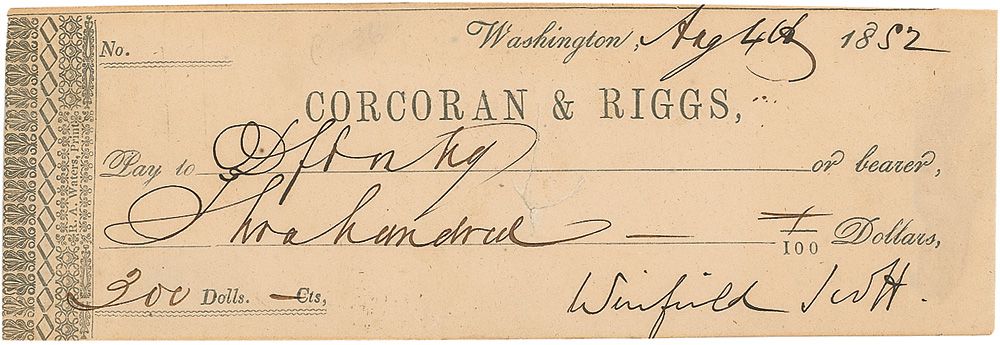 No.
Washington, Aug 4th 1852
CORCORAN & RIGGS,
Pay to or bearer,
Two hundred — /100 Dollars,
200 Dolls. — Cts,
Winfield Scott.
R. A. Waters, Print